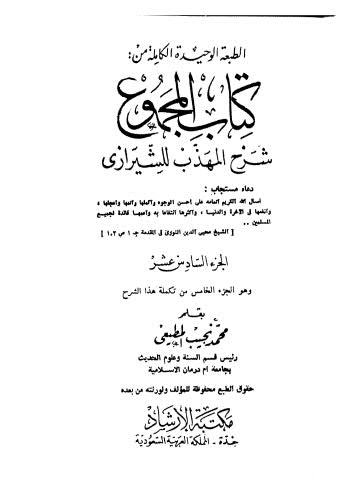 الطبعة الوحيدة الكاملة من:
كتاب المجموع
شرح المهذب للشيرازى
دعاء مستجاب :
أسأل الله الكريم اتمامه على أحسن الوجوه وأكملها وأتمها وأعجلها ،
وأنفعها في الآخرة والدنيا ، وأكثرها انتفاعا به وأعمها فائدة لجميع
المسلمين ..
[ الشيخ محيى الدين النووى في المقدمة جـ ١ ص ١٠٢ ]
الجزء السادس عشر
وهو الجزء الخامس من تكملة هذا الشرح
بقلم
محمد نجيب المطيعى
رئيس قسم السنة وعلوم الحديث
بجامعة أم درمان الاسلامية
حقوق الطبع محفوظة للمؤلف ولورثته من بعده
مكتبة الإرشاد
جدة - المملكة العربية السعودية